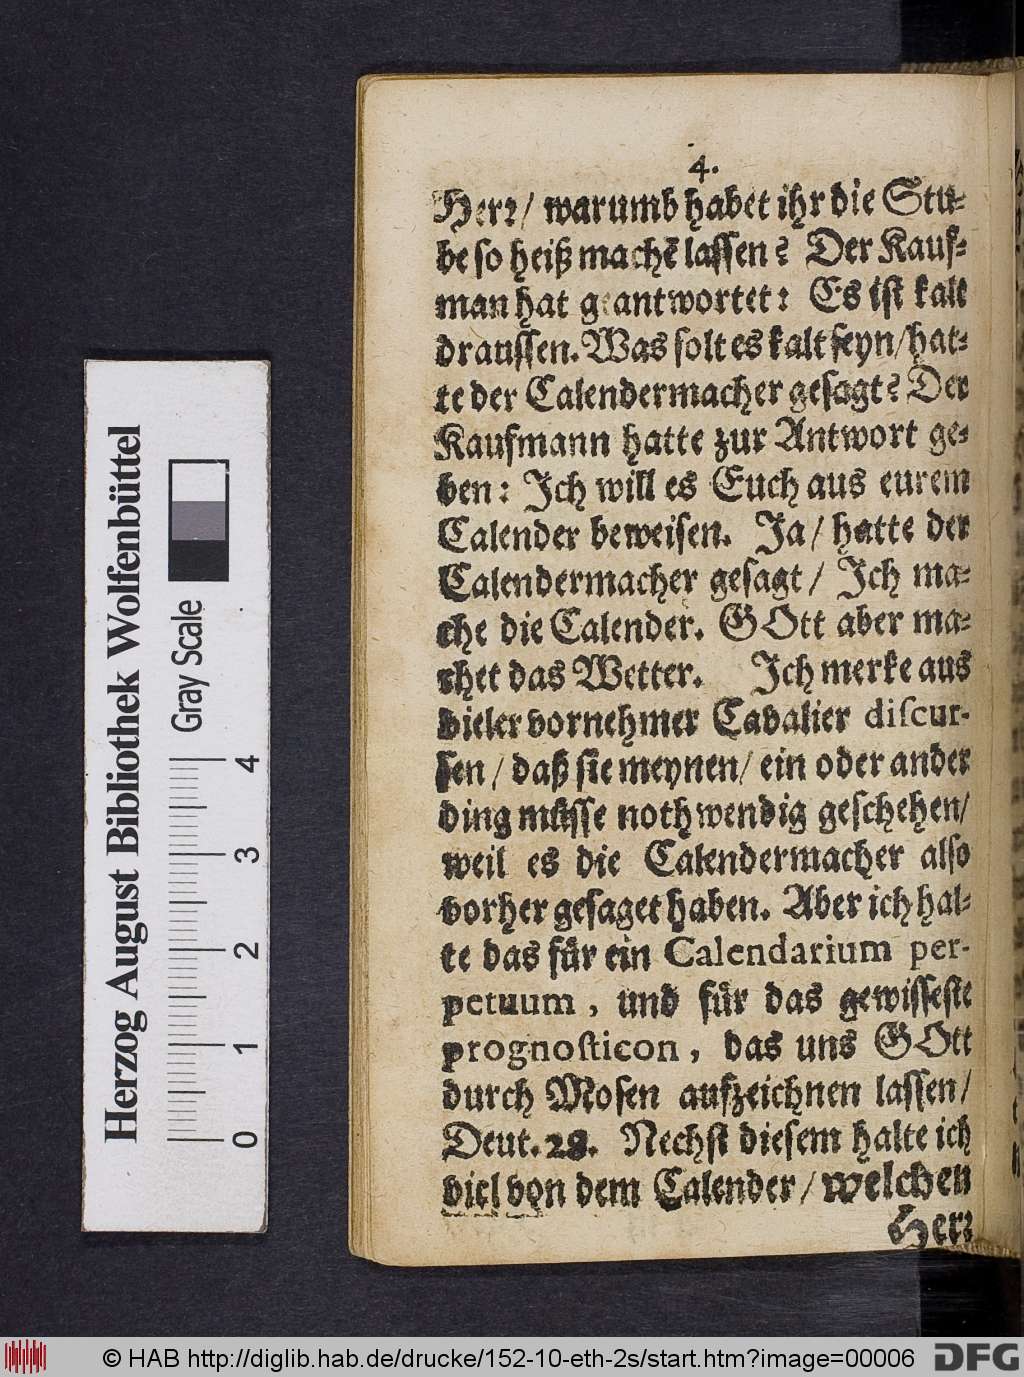 4.
Herr/ warumb habet ihr die Stu-
be so heiß machē lassen? Der Kauf-
man hat geantwortet: Es ist kalt
draussen. Was solt es kalt seyn/ hat-
te der Calendermacher gesagt? Der
Kaufmann hatte zur Antwort ge-
ben: Ich will es Euch aus eurem
Calender beweisen. Ja/ hatte der
Calendermacher gesagt/ Ich ma-
che die Calender. GOtt aber ma-
chet das Wetter. Ich merke aus
vieler vornehmer Cavalier discur-
sen/ daß sie meynen/ ein oder ander
ding müsse nothwendig geschehen/
weil es die Calendermacher also
vorher gesaget haben. Aber ich hal-
te das für ein Calendarium per-
petuum, und für das gewisseste
prognosticon, das uns GOtt
durch Mosen aufzeichnen lassen/
Deut. 28. Nechst diesem halte ich
viel von dem Calender/ welchen
Herr
Herzog August Bibliothek Wolfenbüttel
Gray Scale
0 1 2 3 4
© HAB http://diglib.hab.de/drucke/152-10-eth-2s/start.htm?image=00006
DFG